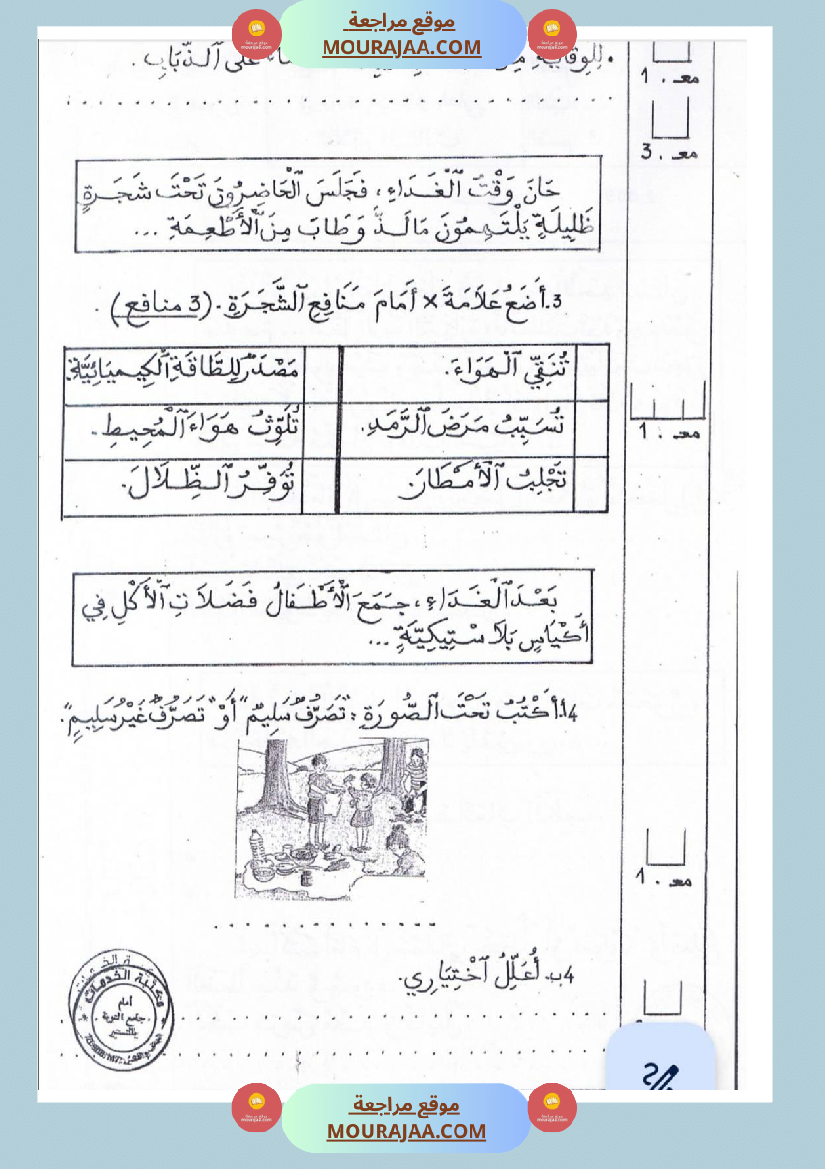 موقع مراجعة
MOURAJAA.COM
على ٱلذُّبَابِ .
معـ . 1
معـ . 3
حَانَ وَقْتُ ٱلْغَدَاءِ ، فَجَلَسَ ٱلْحَاضِرُونَ تَحْتَ شَجَرَةٍ
ظَلِيلَةٍ يَلْتَهِمُونَ مَا لَذَّ وَطَابَ مِنَ ٱلْأَطْعِمَةِ ...
3. أَضَعُ عَلَامَةَ × أَمَامَ مَنَافِعِ ٱلشَّجَرَةِ . (3 منافع) .
تُنَقِّي ٱلْهَوَاءَ.
مَصْدَرٌ لِلطَّاقَةِ ٱلْكِيمْيَائِيَّةِ
تُسَبِّبُ مَرَضَ ٱلرَّمَدِ.
تُلَوِّثُ هَوَاءَ ٱلْمُحِيطِ.
تَجْلِبُ ٱلْأَمْطَارَ.
تُوَفِّرُ ٱلظِّلَالَ.
معـ . 1
بَعْدَ ٱلْغَدَاءِ ، جَمَعَ ٱلْأَطْفَالُ فَضَلَاتِ ٱلْأَكْلِ فِي
أَكْيَاسٍ بَلَاسْتِيكِيَّةٍ ...
4أ. أَكْتُبُ تَحْتَ ٱلصُّورَةِ : "تَصَرُّفٌ سَلِيمٌ" أَوْ "تَصَرُّفٌ غَيْرُ سَلِيمٍ".
معـ . 1
4ب. أُعَلِّلُ ٱخْتِيَارِي.
مكتبة الخدمات
أمام
جامع التوبة
موقع مراجعة
MOURAJAA.COM